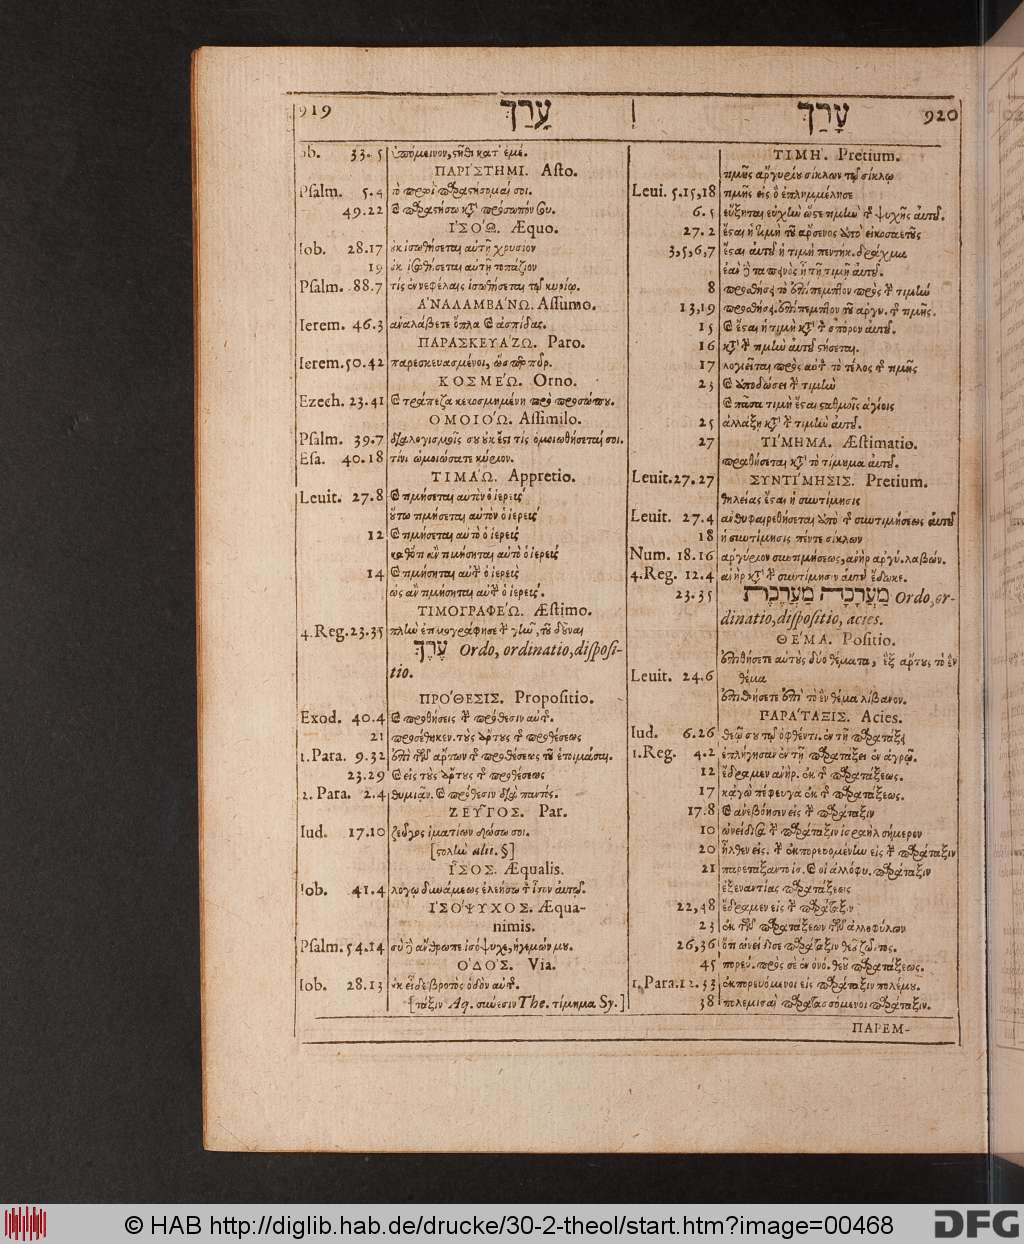 919 עָרַךְ
Iob. 33.5 ὑπόμεινον, στῆθι κατ' ἐμέ.
ΠΑΡΙΣΤΗΜΙ. Asto.
Psalm. 5.4 τὸ πρωὶ παραστήσομαί σοι.
49.22 καὶ παραστήσω κατὰ πρόσωπόν σου.
ἸΣΟΏ. Æquo.
Iob. 28.17 οὐκ ἰσωθήσεται αὐτῇ χρυσίον
19 οὐκ ἰσωθήσεται αὐτῇ τοπάζιον
Psalm. 88.7 τίς ἐν νεφέλαις ἰσωθήσεται τῷ κυρίῳ.
ἈΝΑΛΑΜΒΆΝΩ. Assumo.
Ierem. 46.3 ἀναλάβετε ὅπλα καὶ ἀσπίδας.
ΠΑΡΑΣΚΕΥΆΖΩ. Paro.
Ierem. 50.42 παρεσκευασμένοι, ὥσπερ πῦρ.
ΚΟΣΜΈΩ. Orno.
Ezech. 23.41 καὶ τράπεζα κεκοσμημένη πρὸ προσώπου.
ὉΜΟΙΌΩ. Assimilo.
Psalm. 39.7 διαλογισμοῖς σου οὐκ ἔστι τίς ὁμοιωθήσεταί σοι.
Esa. 40.18 τίνι ὡμοιώσατε κύριον.
ΤΙΜΆΩ. Appretio.
Leuit. 27.8 καὶ τιμήσεται αὐτὸν ὁ ἱερεύς
οὕτω τιμήσεται αὐτὸν ὁ ἱερεύς
12 καὶ τιμήσεται αὐτὸ ὁ ἱερεύς
καθότι ἂν τιμήσηται αὐτὸ ὁ ἱερεύς
14 καὶ τιμήσηται αὐτὴν ὁ ἱερεὺς
ὡς ἂν τιμήσηται αὐτὴν ὁ ἱερεύς.
ΤΙΜΟΓΡΑΦΈΩ. Æstimo.
4.Reg. 23.35 πλὴν ἐτιμογράφησε τὴν γῆν, τοῦ δοῦναι
עֵרֶךְ Ordo, ordinatio, disposi-
tio.
ΠΡΌΘΕΣΙΣ. Propositio.
Exod. 40.4 καὶ προθήσεις τὴν πρόθεσιν αὐτῆς.
21 προσέθηκεν. τοὺς ἄρτους τῆς προθέσεως
1.Para. 9.32 ἐπὶ τῶν ἄρτων τῆς προθέσεως τοῦ ἑτοιμάσαι.
23.29 καὶ εἰς τοὺς ἄρτους τῆς προθέσεως
2. Para. 2.4 θυμιᾷν. καὶ πρόθεσιν διὰ παντός.
ΖΕΥ͂ΓΟΣ. Par.
Iud. 17.10 ζεῦγος ἱματίων δώσω σοι.
[στολὴν Alii. §]
ἼΣΟΣ. Æqualis.
Iob. 41.4 λόγῳ δυνάμεως ἐλεήσω τὸν ἶσον αὐτοῦ.
ἸΣΌΨΥΧΟΣ. Æqua-
nimis.
Psalm. 54.14 σὺ δὲ ἄνθρωπε ἰσόψυχε, ἡγεμών μου.
ὉΔΌΣ. Via.
Iob. 28.13 οὐκ εἶδε βροτὸς ὁδὸν αὐτῆς.
[τάξιν Aq. σύνεσιν The. τίμημα Sy.]
עָרַךְ 920
ΤΙΜΉ. Pretium.
τιμῆς ἀργυρίου σίκλων τῷ σίκλῳ
Leui. 5.15,18 τιμῆς εἰς ὃ ἐπλημμέλησε
6.5 εὔξηται εὐχὴν ὥστε τιμὴν τῆς ψυχῆς αὐτοῦ.
27.2 ἔσται ἡ τιμὴ τοῦ ἄρσενος ἀπὸ εἰκοσαετοῦς
3,5,6,7 ἔσται αὐτοῦ ἡ τιμὴ πεντήκ. δραχμαὶ
ἐὰν δὲ ταπεινὸς ᾖ τῇ τιμῇ αὐτοῦ.
8 προσθήσει τὸ ἐπίπεμπτον πρὸς τὴν τιμήν
13,19 προσθήσει. ἐπίπεμπτον τοῦ ἀργυ. τῆς τιμῆς.
15 καὶ ἔσται ἡ τιμὴ κατὰ τὸν σπόρον αὐτοῦ.
16 κατὰ τὴν τιμὴν αὐτοῦ στήσεται.
17 λογιεῖται πρὸς αὐτὸν τὸ τέλος τῆς τιμῆς
23 καὶ ἀποδώσει τὴν τιμὴν
καὶ πᾶσα τιμὴ ἔσται σταθμοῖς ἁγίοις
25 ἀλλάξῃ κατὰ τὴν τιμὴν αὐτοῦ.
27 ΤΊΜΗΜΑ. Æstimatio.
πραθήσεται κατὰ τὸ τίμημα αὐτοῦ.
Leuit. 27.27 ΣΥΝΤΊΜΗΣΙΣ. Pretium.
θηλείας ἔσται ἡ συντίμησις
Leuit. 27.4 ἀνθυφαιρεθήσεται ἀπὸ τῆς συντιμήσεως αὐτοῦ
18 ἡ συντίμησις πέντε σίκλων
Num. 18.16 ἀργύριον συντιμήσεως, ἀνὴρ ἀργύ. λαβών.
4.Reg. 12.4 ἀνὴρ κατὰ τὴν συντίμησιν αὐτοῦ ἔδωκε.
23.35 מַעֲרָכָה מַעֲרֶכֶת Ordo, or-
dinatio, dispositio, acies.
ΘΈΜΑ. Positio.
ἐπιθήσετε αὐτοὺς δύο θέματα, ἓξ ἄρτους τὸ ἓν
Leuit. 24.6 θέμα
ἐπιθήσετε ἐπὶ τὸ ἓν θέμα λίβανον.
ΠΑΡΆΤΑΞΙΣ. Acies.
Iud. 6.26 θεῷ σου τῷ ὀφθέντι. ἐν τῇ παρατάξει
1.Reg. 4.2 ἐπλήγησαν ἐν τῇ παρατάξει ἐν ἀγρῷ.
12 ἔδραμεν ἀνὴρ. ἐκ τῆς παρατάξεως.
17 κἀγὼ πέφευγα ἐκ τῆς παρατάξεως.
17.8 καὶ ἀνεβόησεν εἰς τὴν παράταξιν
10 ὠνείδισα τὴν παράταξιν ἰσραὴλ σήμερον
20 ἦλθεν εἰς. τὴν ἐκπορευομένην εἰς τὴν παράταξιν
21 παρετάξαντο ἰσ. καὶ οἱ ἀλλόφυ. παράταξιν
ἐξεναντίας παρατάξεως
22,48 ἔδραμεν εἰς τὴν παράταξιν
23 ἐκ τῶν παρατάξεων τῶν ἀλλοφύλων
26,36 ὅτι ὠνείδισε παράταξιν θεοῦ ζῶντος.
45 πορεύ. πρὸς σὲ ἐν ὀνό. θεοῦ παρατάξεως.
1.Para. 12.33 ἐκπορευόμενοι εἰς παράταξιν πολέμου.
38 πολεμισταὶ παρατασσόμενοι παράταξιν.
ΠΑΡΕΜ-
© HAB http://diglib.hab.de/drucke/30-2-theol/start.htm?image=00468
DFG